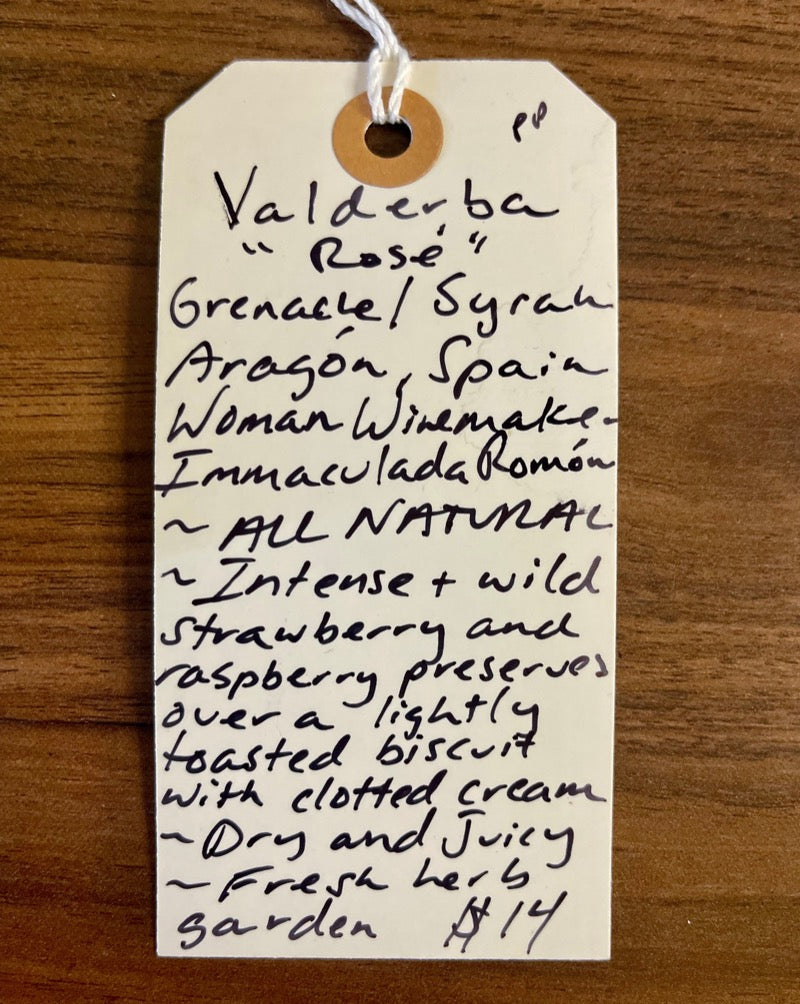 PP
Valderba
"Rosé"
Grenache/Syrah
Aragón, Spain
Woman Winemaker
Immaculada Romón
~ ALL NATURAL
~ Intense + wild
strawberry and
raspberry preserves
over a lightly
toasted biscuit
with clotted cream
~ Dry and Juicy
~ Fresh herb
garden $14